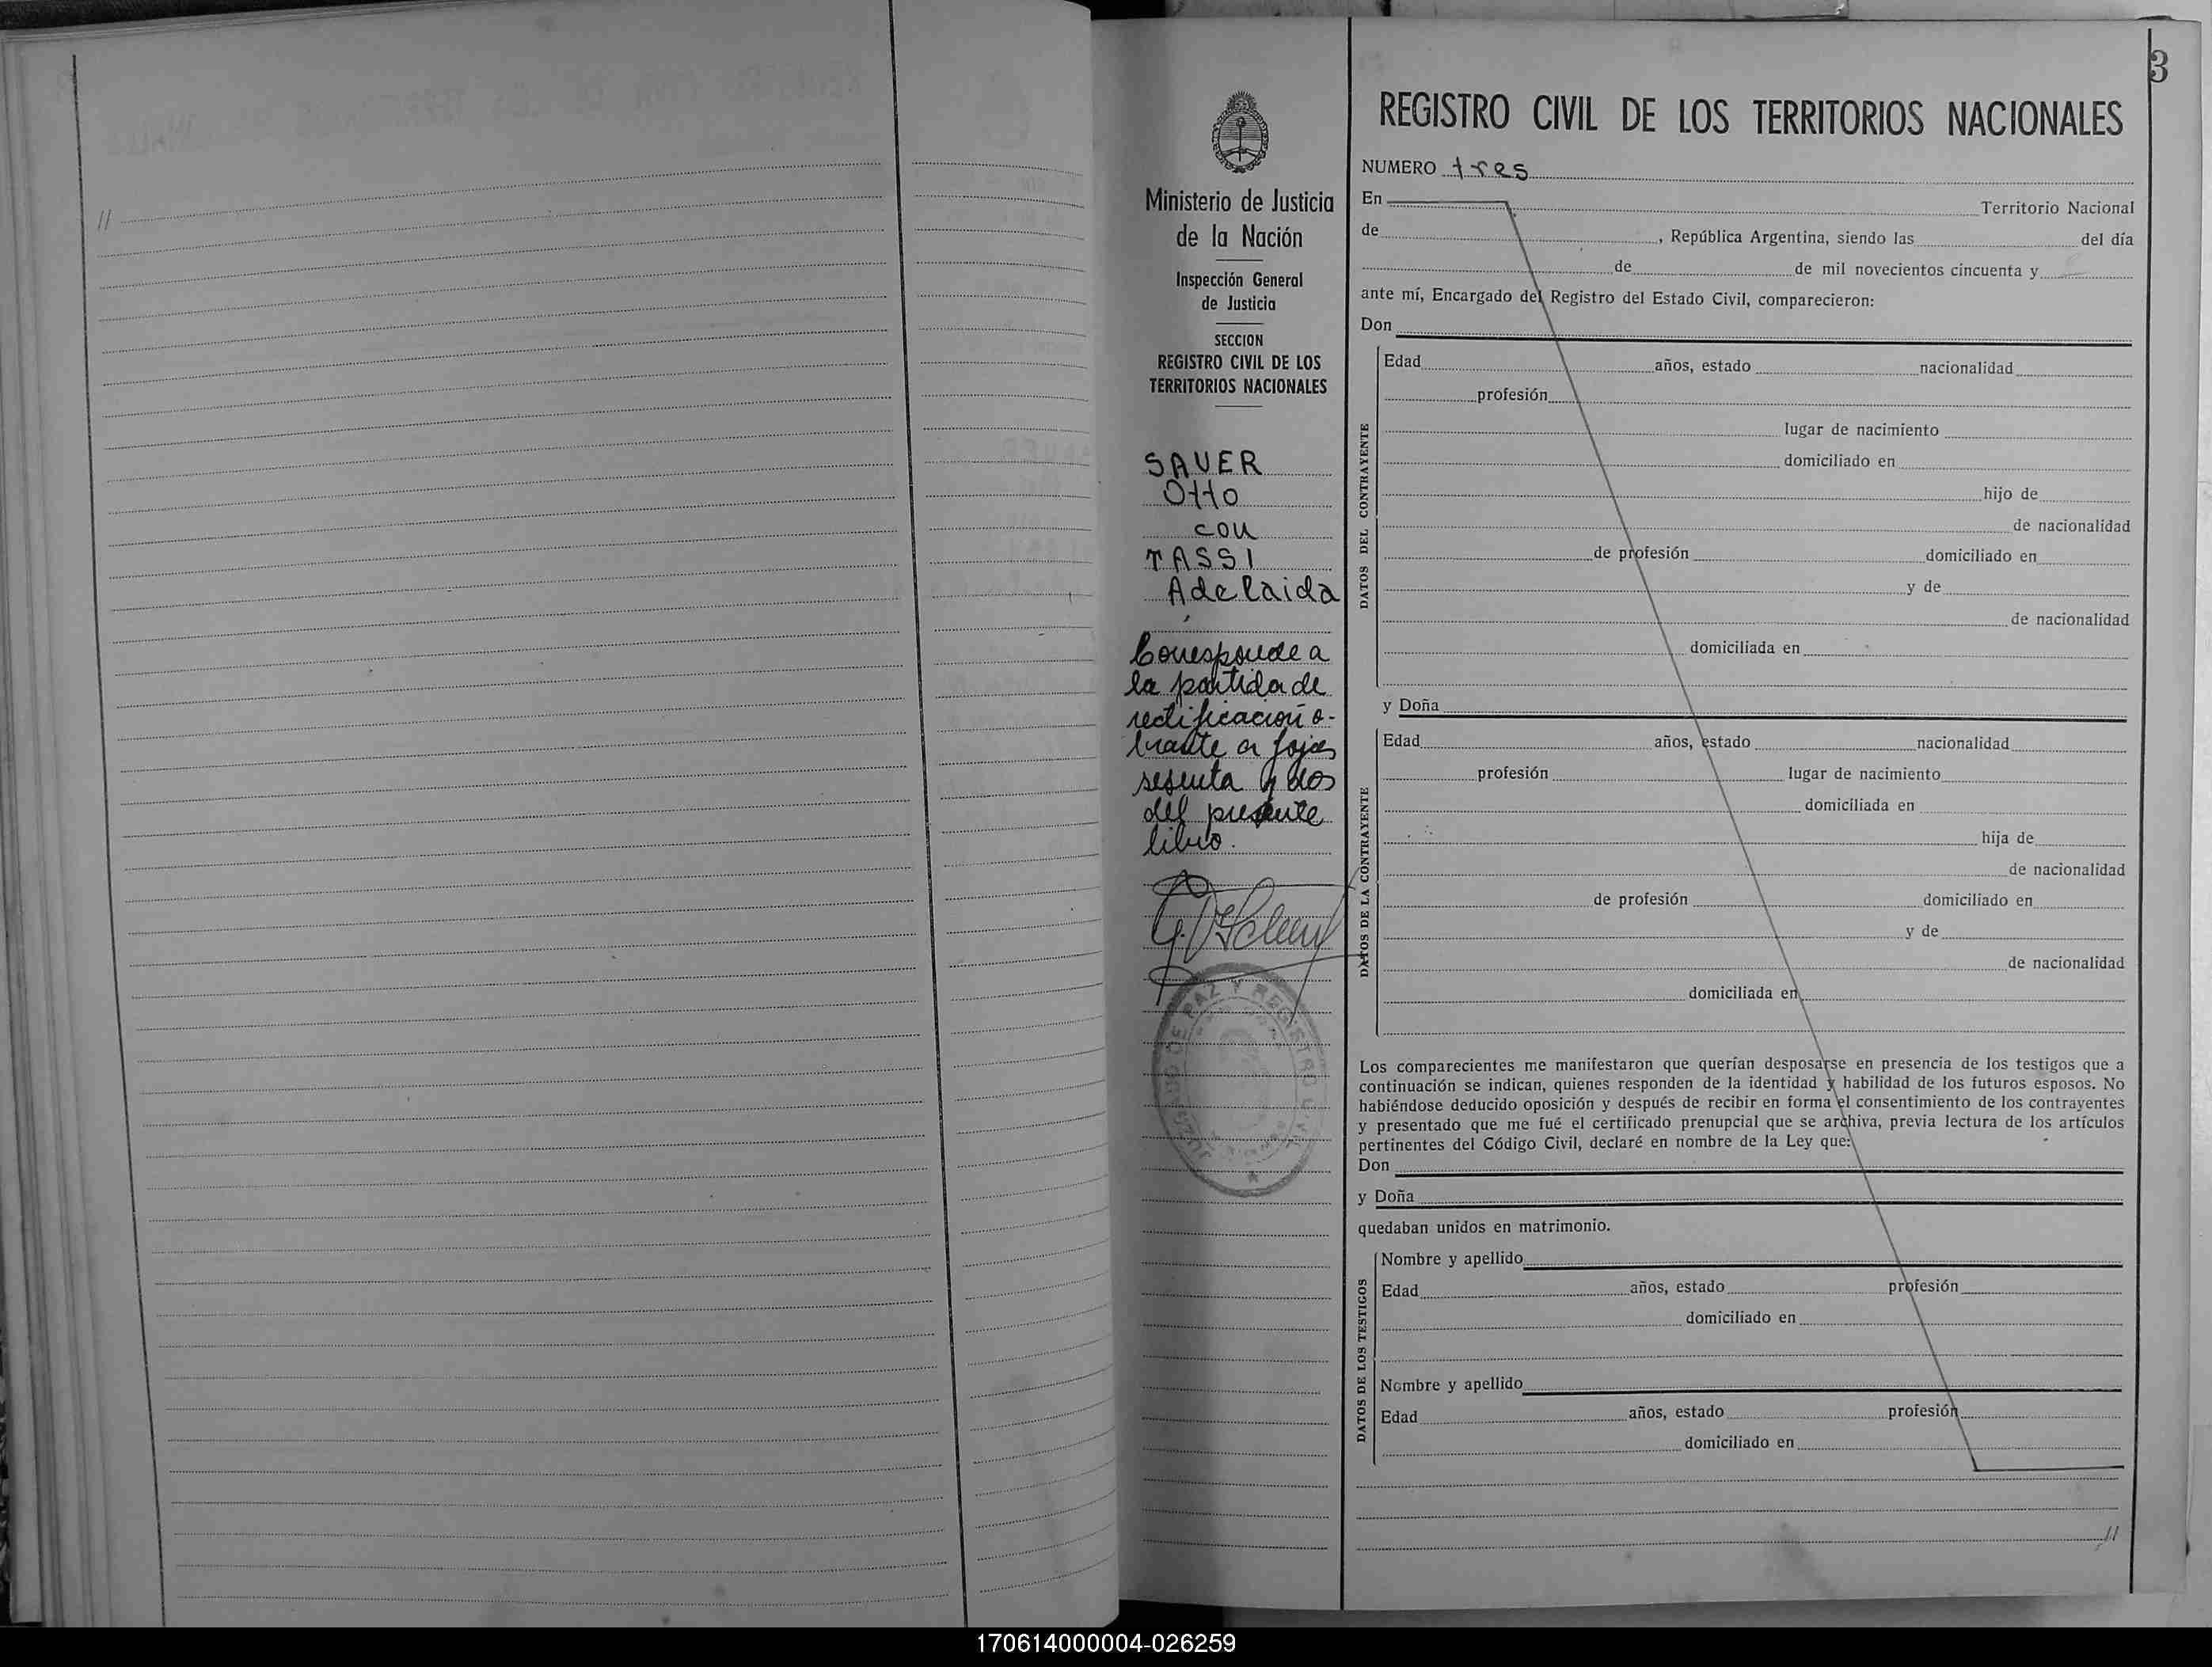 //
3
Ministerio de Justicia
de la Nación
Inspección General
de Justicia
SECCION
REGISTRO CIVIL DE LOS
TERRITORIOS NACIONALES
SAUER
Otto
con
TASSI
Adelaida
Corresponde a
la partida de
rectificación o-
brante a fojas
sesenta y dos
del presente
libro.
JUZGADO DE PAZ Y REGISTRO CIVIL
REGISTRO CIVIL DE LOS TERRITORIOS NACIONALES
NUMERO tres
En Territorio Nacional
de , República Argentina, siendo las del día
de de mil novecientos cincuenta y
ante mí, Encargado del Registro del Estado Civil, comparecieron:
Don
DATOS DEL CONTRAYENTE
Edad años, estado nacionalidad
profesión
lugar de nacimiento
domiciliado en
hijo de
de nacionalidad
de profesión domiciliado en
y de
de nacionalidad
domiciliada en
y Doña
DATOS DE LA CONTRAYENTE
Edad años, estado nacionalidad
profesión lugar de nacimiento
domiciliada en
hija de
de nacionalidad
de profesión domiciliado en
y de
de nacionalidad
domiciliada en
Los comparecientes me manifestaron que querían desposarse en presencia de los testigos que a
continuación se indican, quienes responden de la identidad y habilidad de los futuros esposos. No
habiéndose deducido oposición y después de recibir en forma el consentimiento de los contrayentes
y presentado que me fué el certificado prenupcial que se archiva, previa lectura de los artículos
pertinentes del Código Civil, declaré en nombre de la Ley que:
Don
y Doña
quedaban unidos en matrimonio.
DATOS DE LOS TESTIGOS
Nombre y apellido
Edad años, estado profesión
domiciliado en
Nombre y apellido
Edad años, estado profesión
domiciliado en
//
170614000004-026259